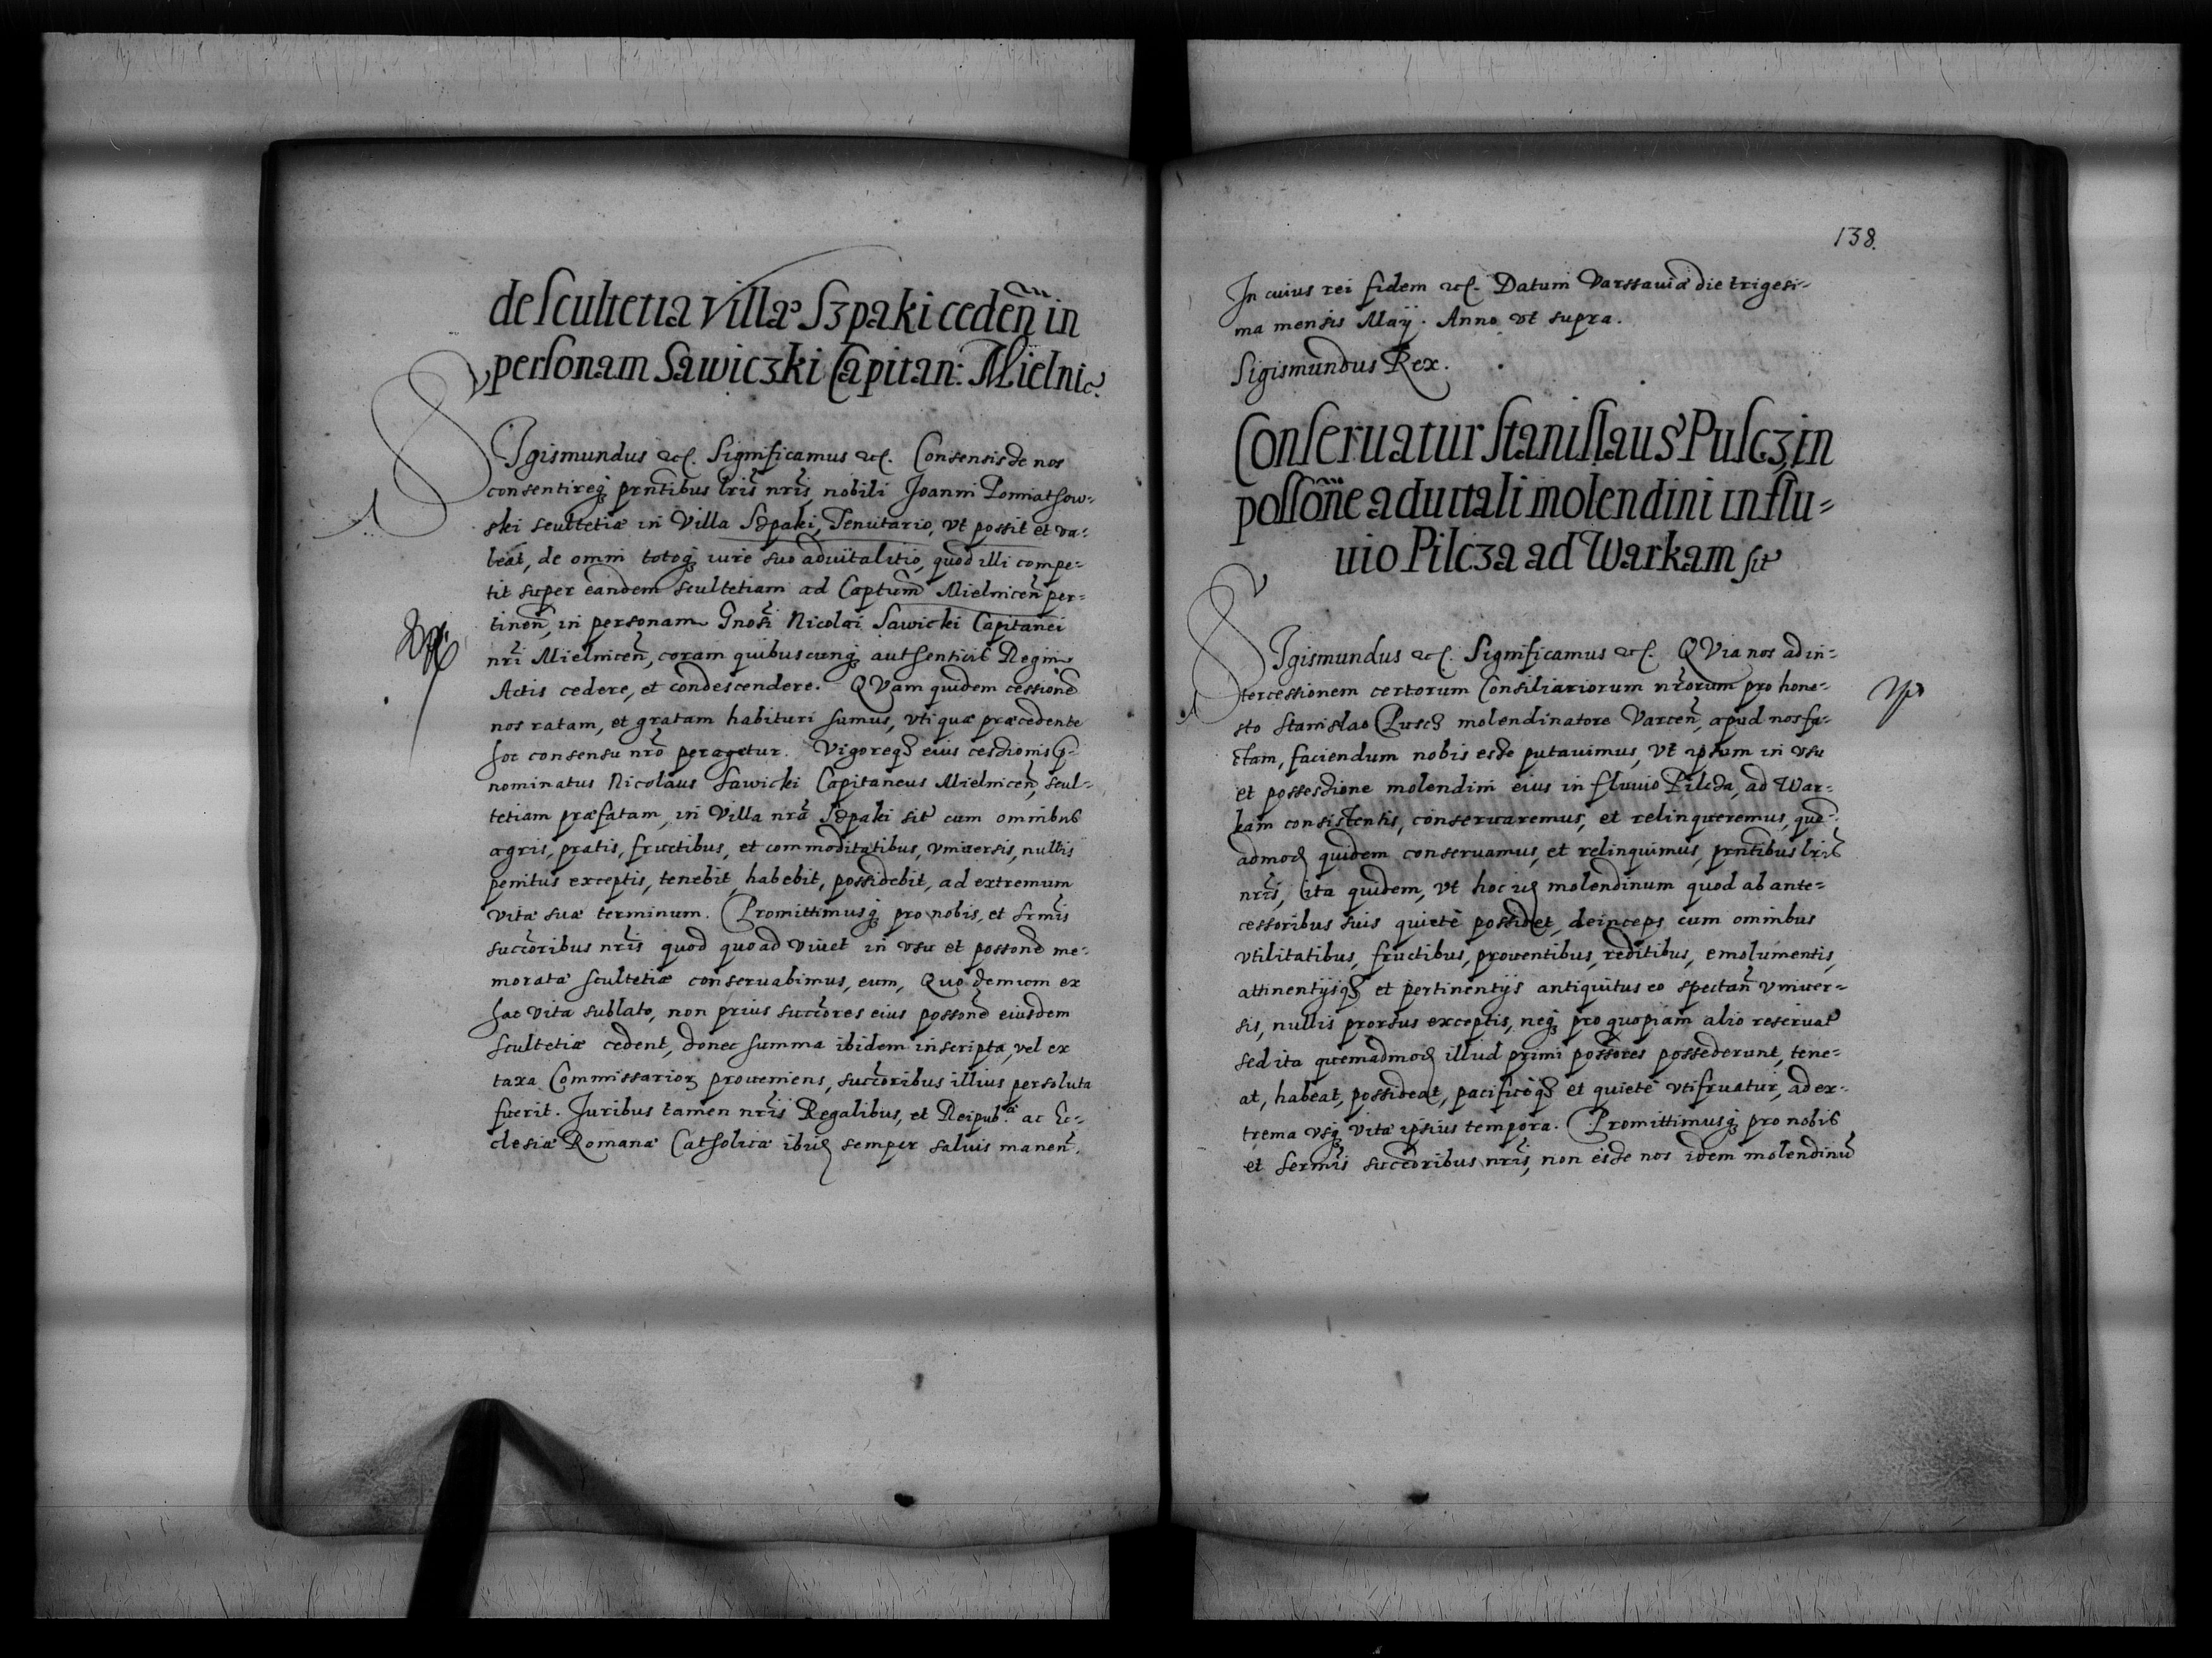 de scultetia villæ Szpaki ceden̄ in
personam Sawiczki Capitan: Mielnic.
SIgismundus etc. Significamus etc. Consensisse nos
consentireqꝫ prn̄tibus lrīs nrīs, nobili Joanni Pomiathow-
ski scultetiæ in Villa Szpaki, Tenutario, vt possit et va-
leat, de omni totoqꝫ iure suo aduitalitio, quod illi compe-
tit super eandem scultetiam ad Captum̄ Mielnicen̄ per-
tinen̄, in personam Gnosī Nicolai Sawicki Capitanei
nrī Mielnicen̄, coram quibuscunqꝫ authenticis Regni
Actis cedere, et condescendere. QVam quidem cessionē
nos ratam, et gratam habituri sumus, vti quæ præcedente
hoc consensu nrō peragetur. Vigoreqꝫ eius cessionis p̄-
nominatus Nicolaus Sawicki Capitaneus Mielnicen̄, scul-
tetiam præfatam, in Villa nrā Szpaki sit cum omnibus
agris, pratis, fructibus, et commoditatibus, vniuersis, nullis
penitus exceptis, tenebit, habebit, possidebit, ad extremum
vitæ suæ terminum. Promittimusqꝫ pro nobis, et srmīs
succoribus nrīs quod quoad viuet in vsu et possonē me-
moratæ scultetiæ conseruabimus, eum, Quo demum ex
hac vita sublato, non prius succores eius possonē eiusdem
scultetiæ cedent, donec summa ibidem inscripta, vel ex
taxa Commissarioꝝ proueniens, succoribus illius persoluta
fuerit. Juribus tamen nrīs Regalibus, et Reipub.æ ac Ec-
clesiæ Romanæ Catholicæ ibid̄ semper saluis manen̄.
138.
In cuius rei fidem etc. Datum Varssauiæ die trigesi-
ma mensis Maij. Anno vt supra.
Sigismundus Rex.
Conseruatur Stanislaus Pulcz in
possōne aduitali molendini in flu-
uio Pilcza ad Warkam sit
SIgismundus etc. Significamus etc. QVia nos ad in-
tercessionem certorum Consiliariorum nrōrum pro hone-
sto Stanislao Pusch molendinatore Varcen̄, apud nos fa-
ctam, faciendum nobis esse putauimus, vt ipsum in vsu
et possessione molendini eius in fluuio Pilcza, ad War-
kam consistentis, conseruaremus, et relinqueremus, quē-
admod̄ quidem conseruamus, et relinquimus, prn̄tibus lrīs
nrīs, ita quidem, vt hoc id̄ molendinum quod ab ante-
cessoribus suis quietè possidet, deinceps cum omnibus
vtilitatibus, fructibus, prouentibus, reditibus, emolumentis,
attinentijsqꝫ et pertinentijs antiquitus eo spectan̄ vniuer-
sis, nullis prorsus exceptis, neqꝫ pro quopiam alio reseruat̄
sed ita quemadmod̄ illud primi possores possederunt, tene-
at, habeat, possideat, pacificèqꝫ et quietè vtifruatur, ad ex-
trema vsqꝫ vitæ ipsius tempora. Promittimusqꝫ pro nobis
et sermīs succoribus nrīs, non esse nos idem molendinū